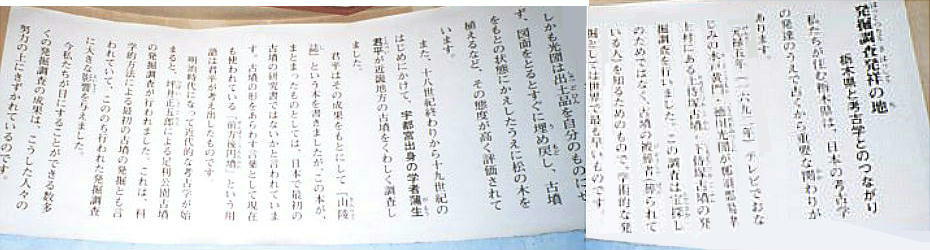 発掘調査発祥の地
栃木県と考古学とのつながり
私たちが住む栃木県は、日本の考古学
の発達のうえで古くから重要な関わりが
あります。
元禄五年(一六九二年)テレビでおな
じみの水戸黄門・徳川光圀が那須郡湯津
上村にある上侍塚古墳・下侍塚古墳の発
掘調査を行いました。この調査は宝探し
のためではなく、古墳の被葬者(葬られて
いる人)を知るためのもので、学術的な発
掘としては世界で最も早いものです。
しかも光圀は出土品を自分のものにせ
ず、図面をとるとすぐに埋め戻し、古墳
をもとの状態にかえしたうえに松の木を
植えるなど、その態度が高く評価されて
います。
また、十八世紀終わりから十九世紀の
はじめにかけて、宇都宮出身の学者蒲生
君平が近畿地方の古墳をくわしく調査し
ました。
君平はその成果をもとにして「山陵
誌」という本を書きましたが、この本が、
古墳の研究書ではないかと言われていま
まとまったものとしては、日本で最初の
す。古墳の形をあらわす言葉として現在
も使われている「前方後円墳」という用
語は君平が考え出したものです。
明治時代になって近代的な考古学が始
まると、坪井正五郎による足利公園古墳
の発掘調査が行われました。これは、科
学的方法による最初の古墳の発掘とも言
われていて、こののち行われた発掘調査
に大きな影響を与えました。
今私たちが目にすることができる数多
くの発掘調査の成果は、こうした人々の
努力の上にきずかれているのです。